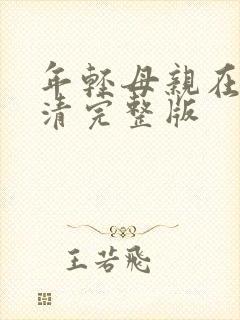 年轻母親在
清完整版
王若飛